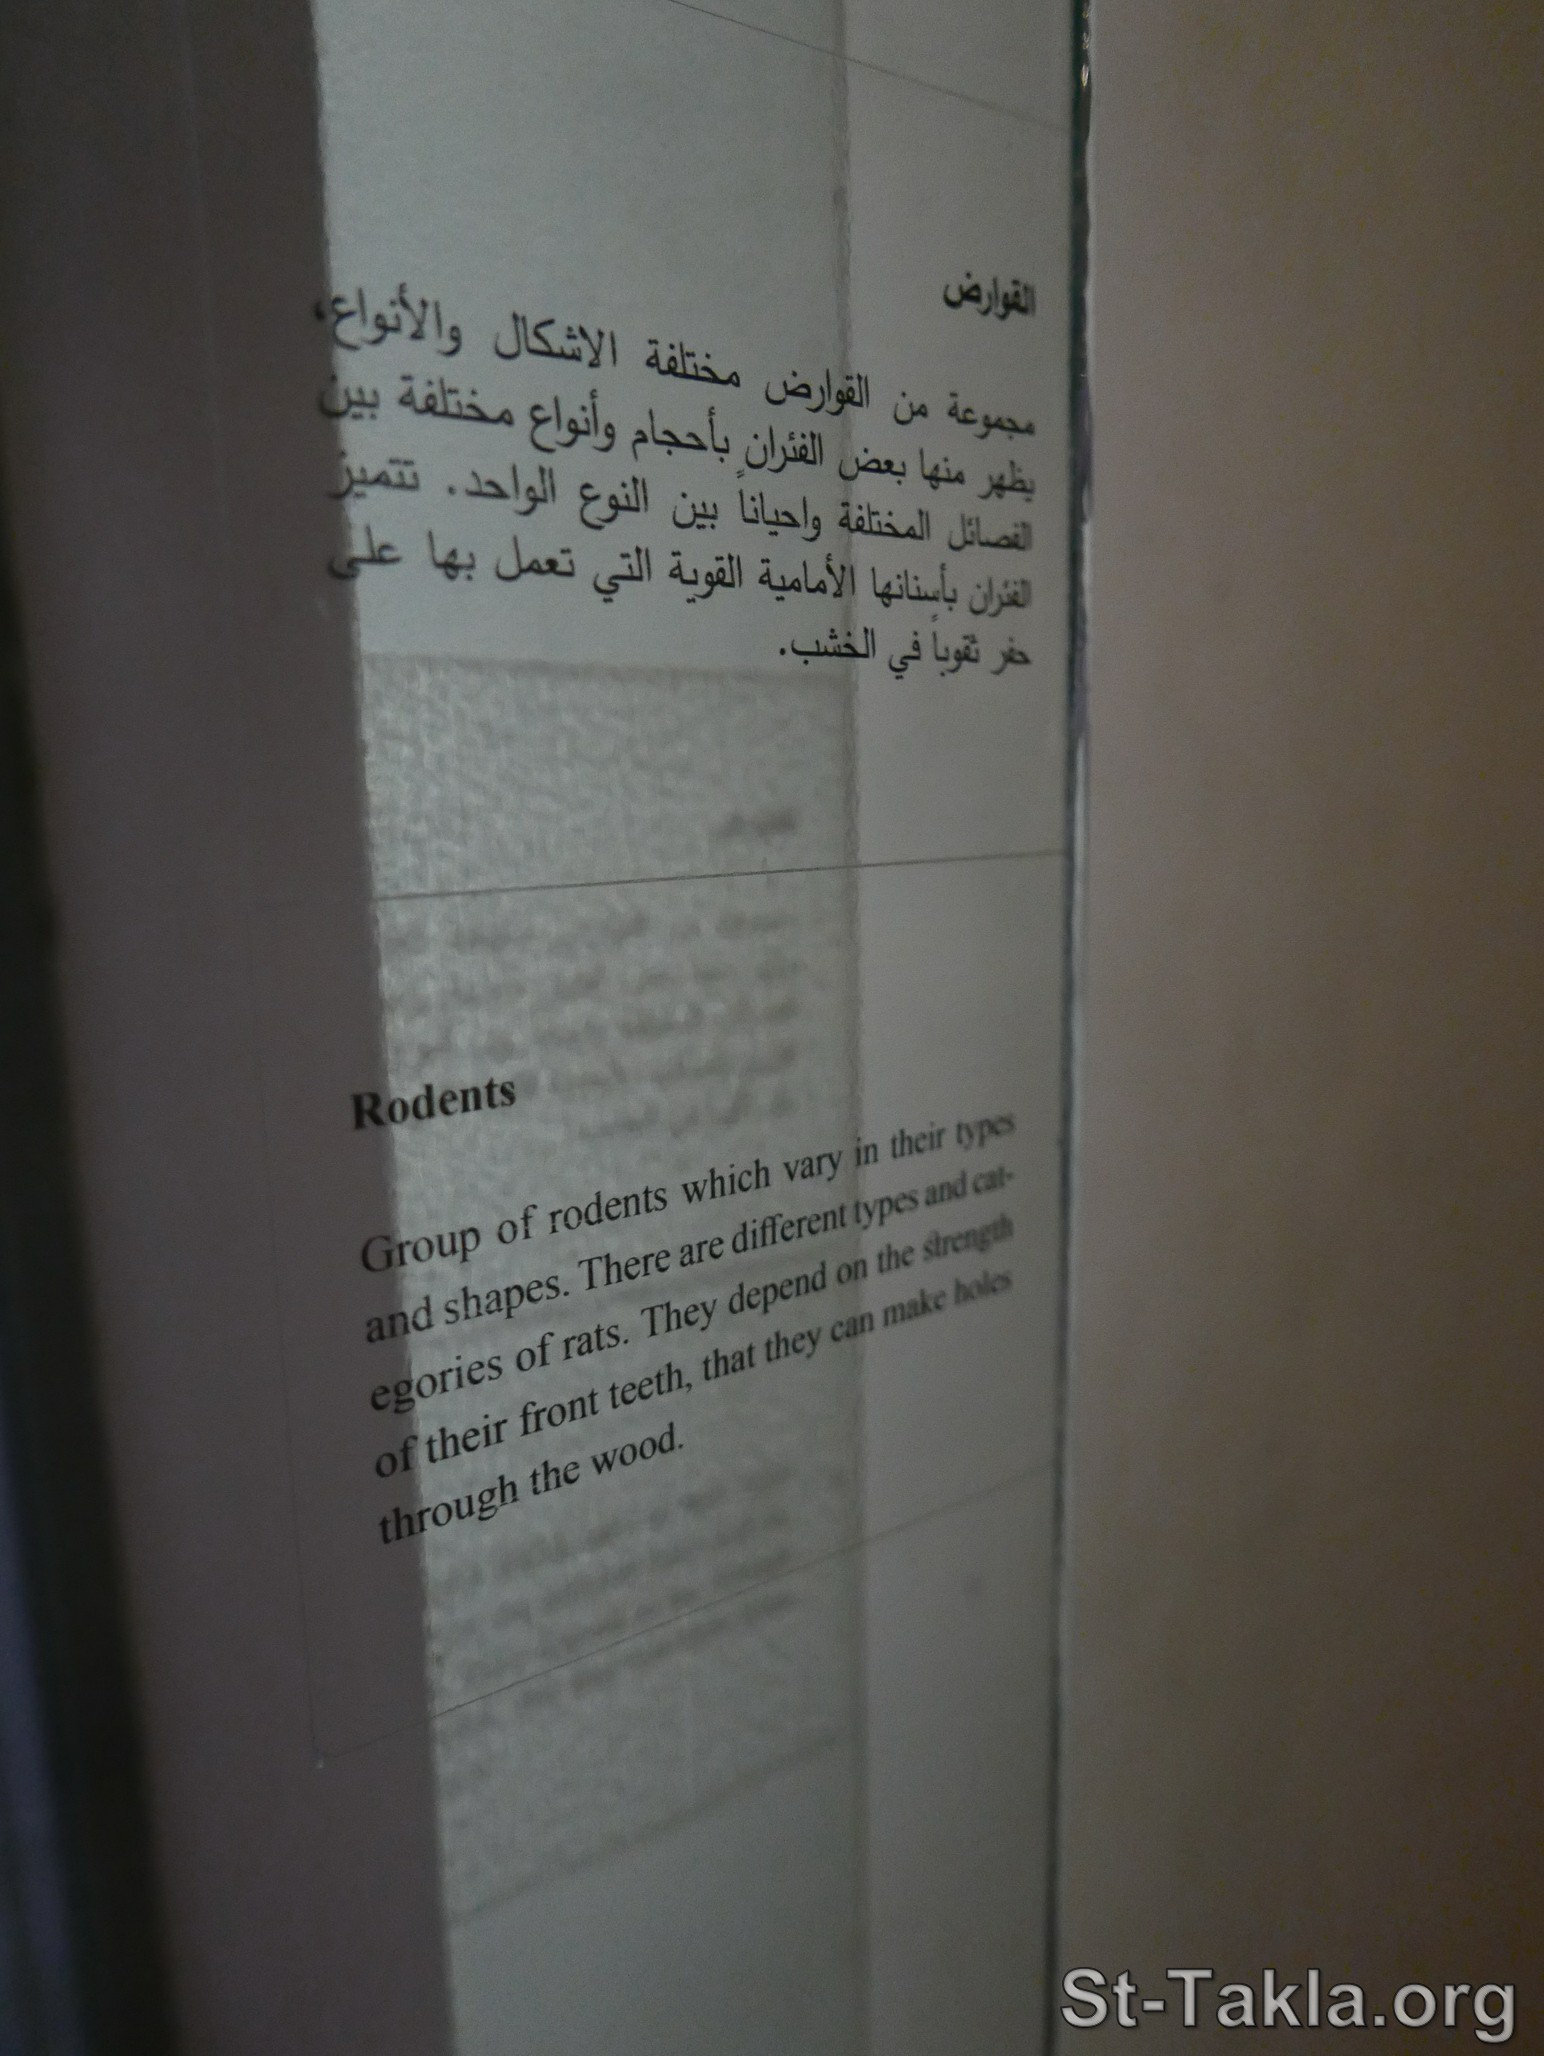 القوارض
مجموعة من القوارض مختلفة الاشكال والأنواع،
يظهر منها بعض الفئران بأحجام وأنواع مختلفة بين
الفصائل المختلفة واحياناً بين النوع الواحد. تتميز
الفئران بأسنانها الأمامية القوية التي تعمل بها على
حفر ثقوباً في الخشب.
Rodents
Group of rodents which vary in their types
and shapes. There are different types and cat-
egories of rats. They depend on the strength
of their front teeth, that they can make holes
through the wood.
St-Takla.org